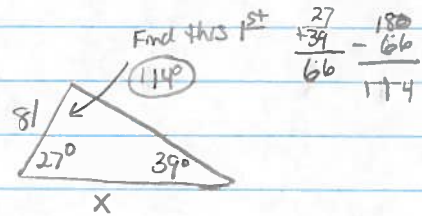 Find this 1st
114°
27
+39
66
180
- 66
114
81
27°
39°
x